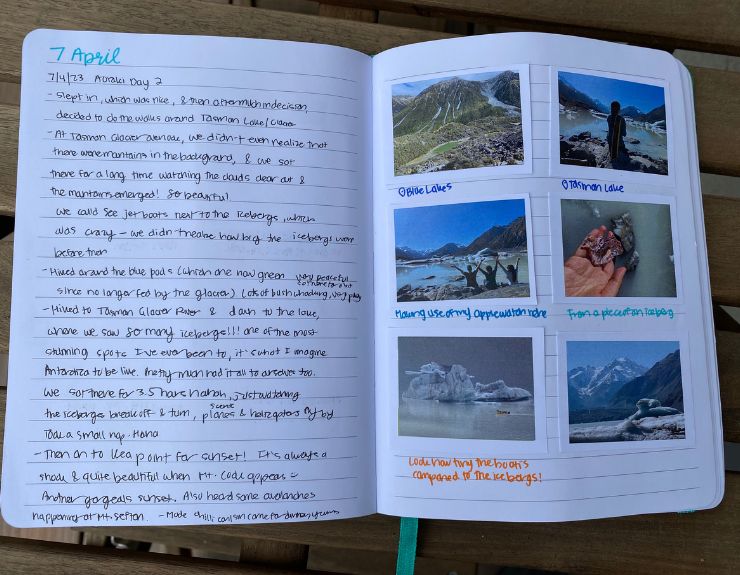 7 April
7/4/23 Aoraki Day 2
- Slept in, which was nice, & then after much indecision,
decided to do the walks around Tasman Lake/Glacier
- At Tasman Glacier we didn't even realize that
there were mountains in the background, & we sat
there for a long time watching the clouds clear out &
the mountains emerged! So beautiful
we could see jet boats next to the icebergs, which
was crazy - we didn't realize how big the icebergs were
before then
- Hiked around the blue pools (which are now green very peaceful
since no longer fed by the glacier) (lots of bush whacking,
- Hiked to Tasman Glacier River & down to the lake,
where we saw so many icebergs!!! One of the most
stunning spots I've ever been to, it's what I imagine
Antarctica to be like. Pretty much had it all to ourselves too.
We sat there for 3.5 hours hahah, just watching
the icebergs break off & turn, scenic planes & helicopters fly by
Took a small nap.
- Then on to Kea point for sunset! It's always a
& quite beautiful when Mt. Cook appears
Another gorgeous sunset. Also heard some avalanches
happening at Mt. Sefton. - Made chilli
Blue Lakes
Tasman Lake
Making use of my apple watch here
From a piece of an iceberg
Look how tiny the boat is
compared to the icebergs!